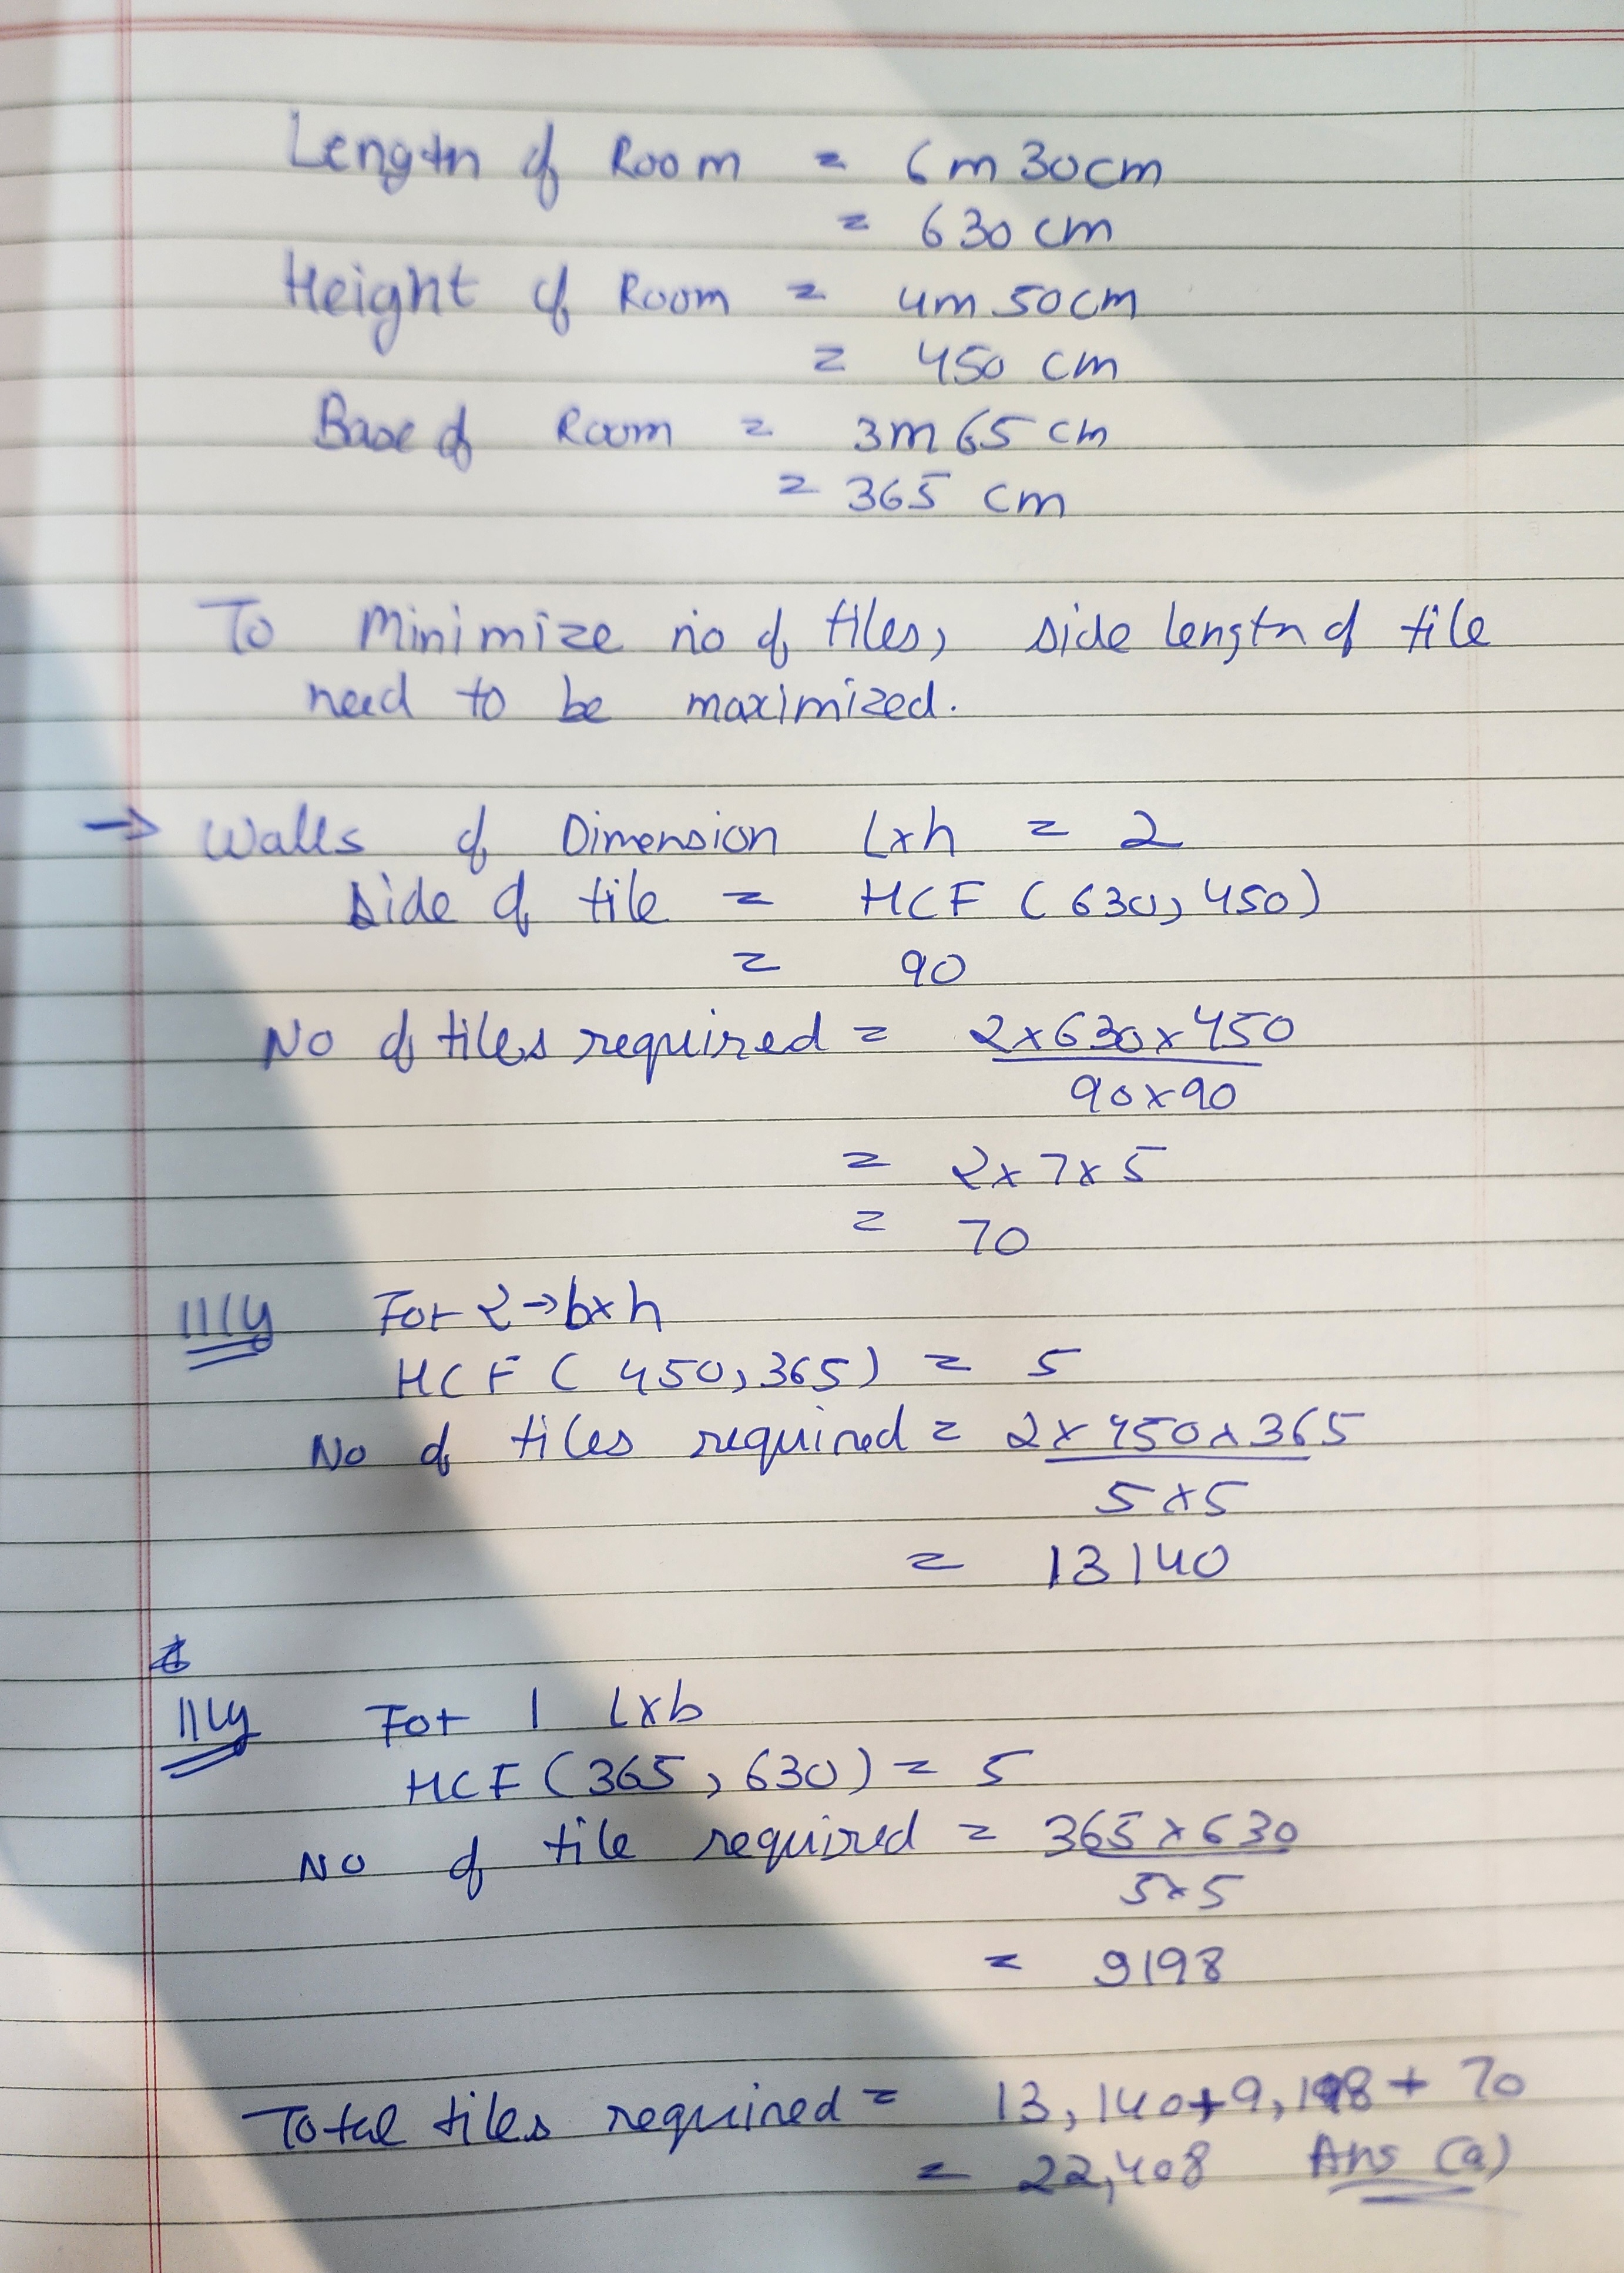 Length of Room = 6m 30cm
= 630 cm
Height of Room = 4m 50cm
= 450 cm
Base of Room = 3m 65 cm
= 365 cm
To Minimize no of tiles, side length of tile
need to be maximized.
→ Walls of Dimension l×h = 2
side of tile = HCF (630, 450)
= 90
No of tiles required = 2×630×450
90×90
= 2×7×5
= 70
IIIly For 2→b×h
HCF (450, 365) = 5
No of tiles required = 2×450×365
5×5
= 13140
IIIly For 1 l×b
HCF (365, 630) = 5
No of tile required = 365×630
5×5
= 9198
Total tiles required = 13,140+9,198+70
= 22,408 Ans (a)